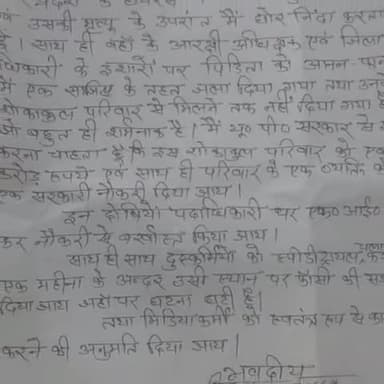 उसकी मृत्यु के उपरांत मैं घोर निंदा करता
हूँ। साथ ही वहाँ के आरक्षी अधिक्षक एवं जिला
धिकारी के इशारों पर पिड़िता को
में एक साजिस के तहत जला दिया गया तथा उनके
शोकाकुल परिवार से मिलने तक नहीं दिया गया है
जो बहुत ही शर्मनाक है। मैं यू० पी० सरकार से
करना चाहता हूँ कि इस शोकाकुल परिवार को एक
करोड़ रुपये एवं साथ ही परिवार के एक व्यक्ति को
एक सरकारी नौकरी दिया जाय।
इन दोषियों पदाधिकारी पर एफ० आई०
कर नौकरी से बर्खास्त किया जाय।
साथ ही साथ दुस्कर्मियों को स्पीडी ट्रायल चला
एक महीना के अन्दर उसी स्थान पर फाँसी की सजा
दिया जाय जहाँ पर घटना घटी है।
तथा मिडियाकर्मी को स्वतंत्र रूप से का
करने की अनुमति दिया जाय।
भवदीय